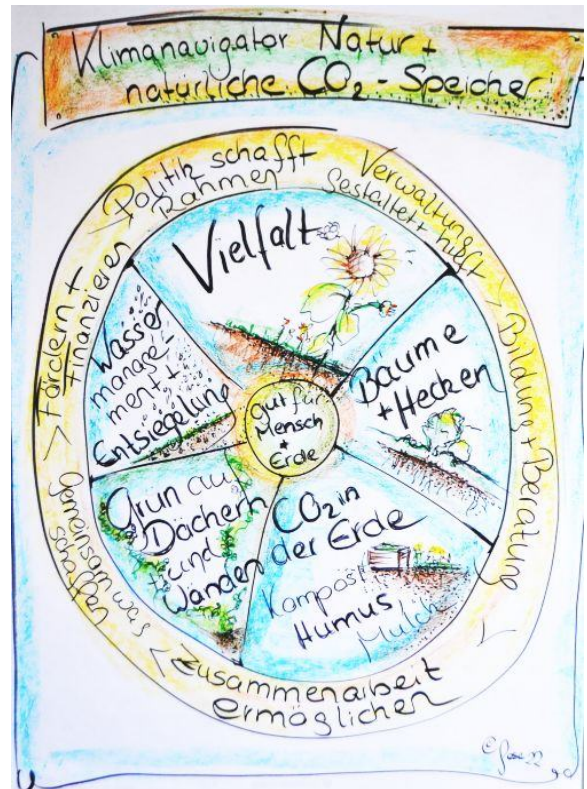 Klimanavigator Natur +
natürliche CO₂-Speicher
Politik schafft
Rahmen
Verwaltung
gestaltet + hilft
> Bildung + Beratung
Zusammenarbeit
ermöglichen
Gemeinsam was
schaffen
> Fördern +
Finanzieren
Vielfalt
Bäume
+ Hecken
CO₂ in
der Erde
Kompost
Humus
Mulch
Grün auf
Dächern
und
Wänden
Wasser
manage-
ment +
Entsiegelung
gut für
Mensch
+
Erde